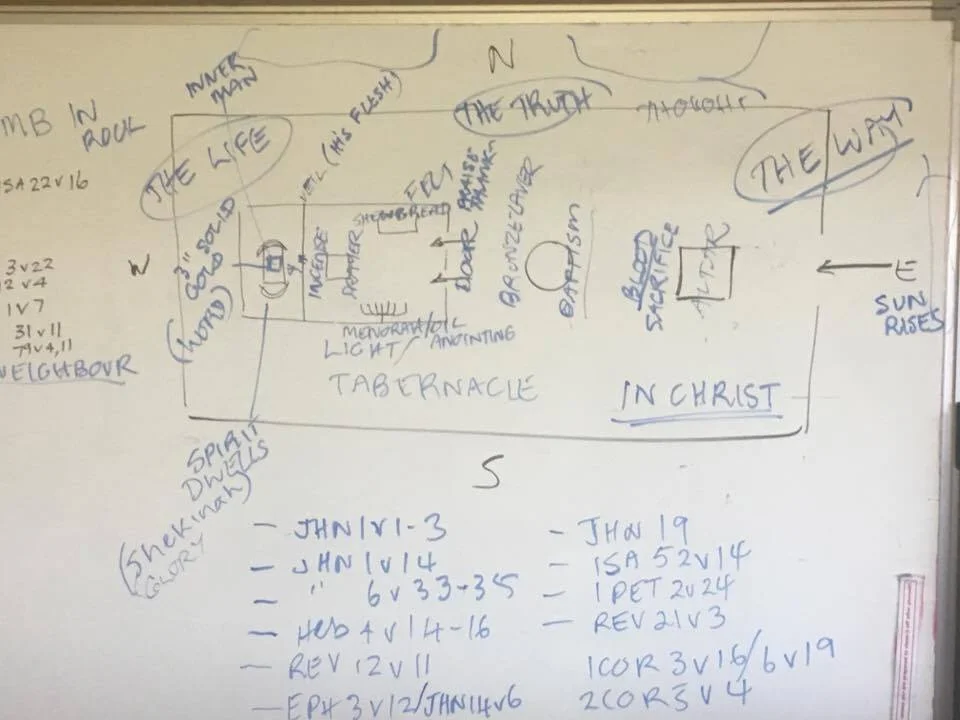 MB IN
ROCK
ISA 22 v 16
3 v 22
2 v 4
1 v 7
31 v 11
79 v 4, 11
NEIGHBOUR
N
INNER
MAN
THE LIFE
(HIS FLESH)
THE TRUTH
THE WAY
W
3" SOLID
GOLD
(WORD)
INCENSE
PRAYER
SHEWBREAD
DOOR
BRONZE LAVER
BAPTISM
BLOOD
SACRIFICE
ALTAR
E
SUN
RISES
MENORAH/OIL
LIGHT/ ANOINTING
TABERNACLE
IN CHRIST
SPIRIT
DWELLS
(Shekinah)
GLORY
S
- JHN 1 v 1-3
- JHN 1 v 14
- " 6 v 33-35
- Heb 4 v 14-16
- REV 12 v 11
- EPH 3 v 12/JHN 14 v 6
- JHN 19
- ISA 52 v 14
- 1 PET 2 v 24
- REV 21 v 3
1 COR 3 v 16/6 v 19
2 COR 5 v 4